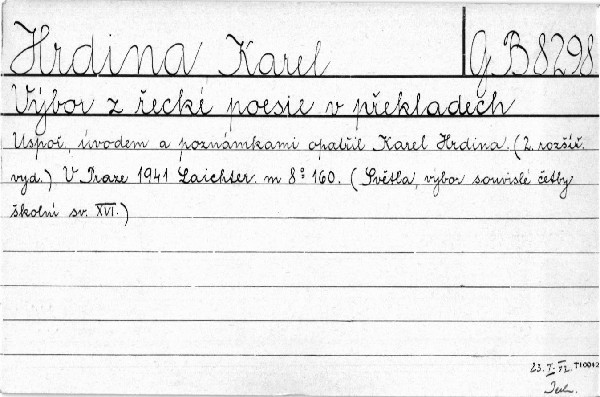 Hrdina Karel GB 8298
Výbor z řecké poesie v překladech
Uspoř. úvodem a poznámkami opatřil Karel Hrdina. (2. rozšíř.
vyd.) V Praze 1941 Laichter. m 8° 160. (Světla, výbor souvislé četby
školní sv. XVI.)